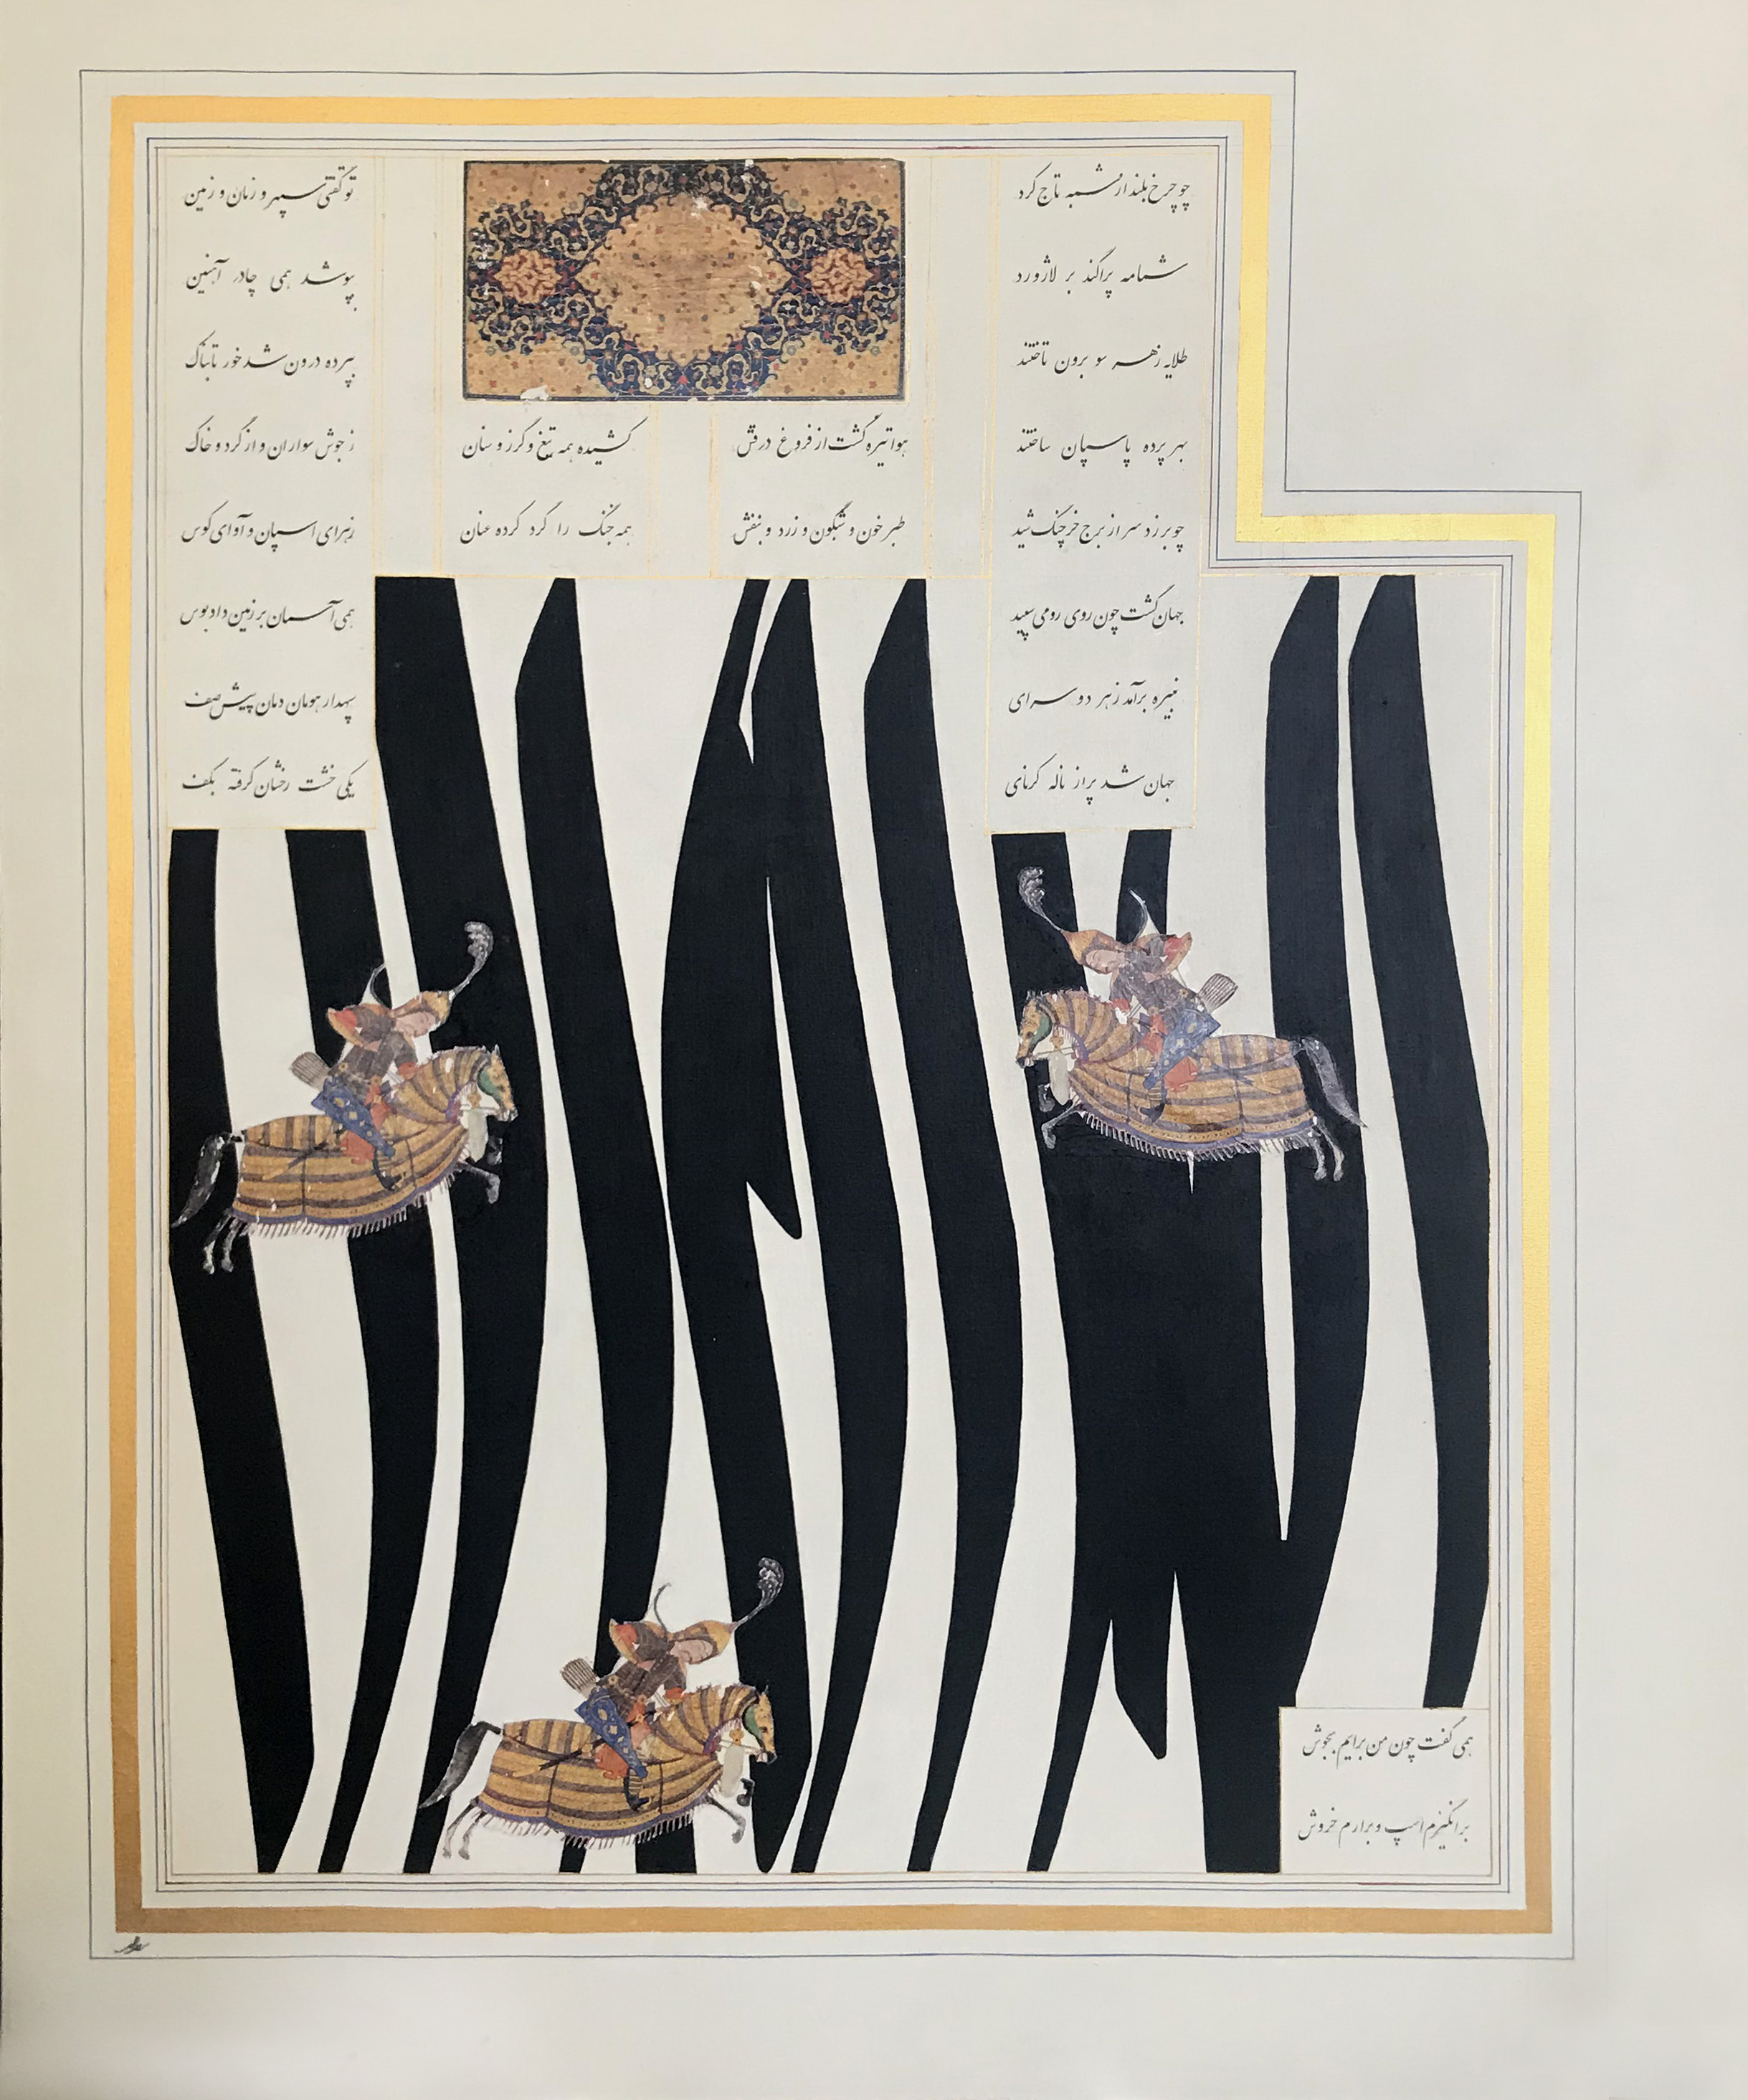 چو چرخ بلند از شبه تاج کرد
شمامه پراگند بر لاژورد
طلایه زهر سو برون تاختند
بهر پرده پاسبان ساختند
چو برزد سر از برج خرچنگ شید
جهان گشت چون روی رومی سپید
تبیره برآمد زهر دو سرای
جهان شد پر از ناله کرنای
هوا تیره گشت از فروغ درفش
طبر خون و شبگون و زرد و بنفش
کشیده همه تیغ و گرز و سنان
همه جنگ را گرد کرده عنان
تو گفتی سپهر و زمان و زمین
بپوشد همی چادر آهنین
بپرده درون شد خور تابناک
ز جوش سواران و از گرد و خاک
زهرای اسپان و آوای کوس
همی آسمان بر زمین داد بوس
سپهدار هومان دمان پیش صف
یکی خشت رخشان گرفته بکف
همی گفت چون من برایم بجوش
برانگیزم اسپ و برارم خروش